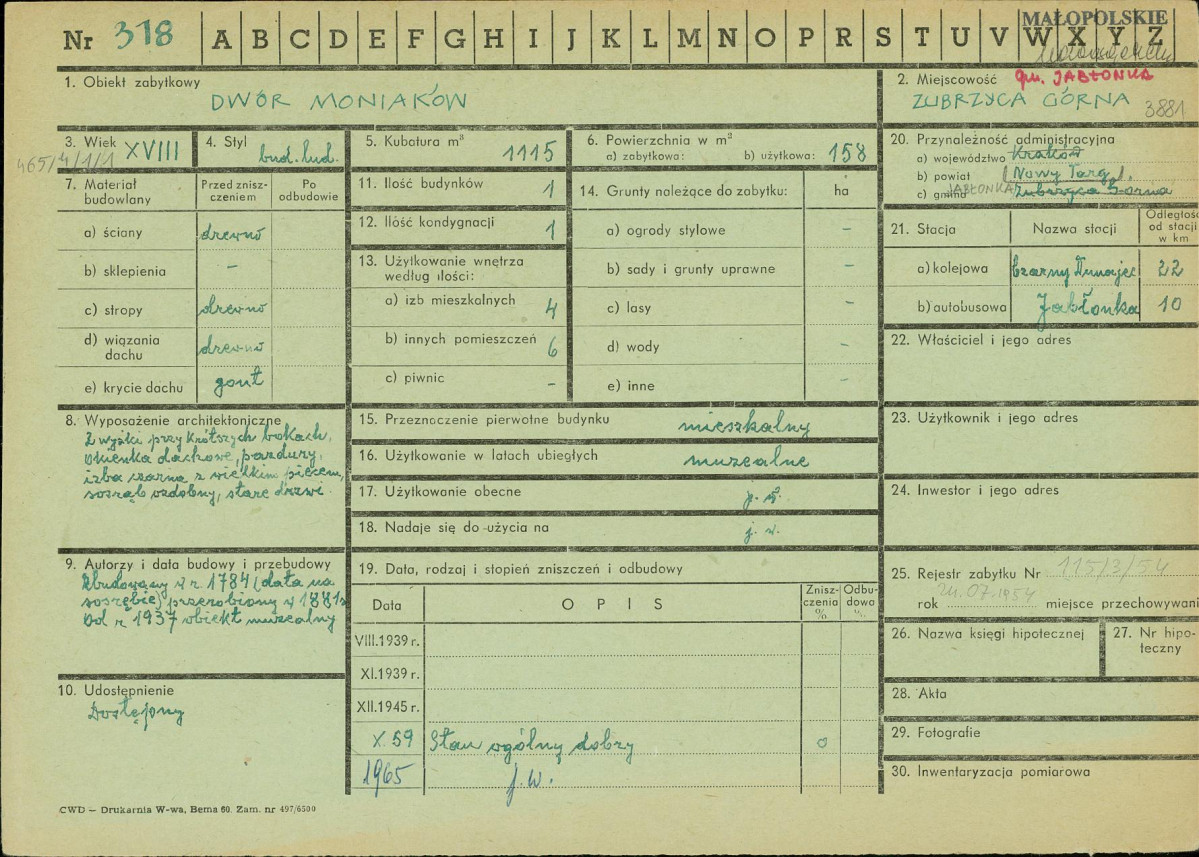 Nr 318 A B C D E F G H I J K L M N O P R S T U V W X Y Z
MAŁOPOLSKIE
1. Obiekt zabytkowy
DWÓR MONIAKÓW
2. Miejscowość gm. JABŁONKA
ZUBRZYCA GÓRNA 3881
3. Wiek XVIII
465/4/1/1
4. Styl bud. lud.
5. Kubatura m³ 1115
6. Powierzchnia w m²
a) zabytkowa: b) użytkowa: 158
7. Materiał budowlany
Przed znisz-
czeniem
Po
odbudowie
a) ściany drewno
b) sklepienia –
c) stropy drewno
d) wiązania
dachu drewno
e) krycie dachu gont
8. Wyposażenie architektoniczne
2 wyżki przy krótszych bokach,
okienka dachowe, pazdury,
izba czarna z wielkim piecem,
sosrąb ozdobny, stare drzwi.
9. Autorzy i data budowy i przebudowy
Zbudowany w r. 1784 (data na
sosrębie) przerobiony w 1881r.
Od r. 1937 obiekt muzealny
10. Udostępnienie
Dostępny
11. Ilość budynków 1
12. Ilość kondygnacji 1
13. Użytkowanie wnętrza
według ilości:
a) izb mieszkalnych 4
b) innych pomieszczeń 6
c) piwnic –
14. Grunty należące do zabytku: ha
a) ogrody stylowe –
b) sady i grunty uprawne –
c) lasy –
d) wody –
e) inne –
15. Przeznaczenie pierwotne budynku mieszkalny
16. Użytkowanie w latach ubiegłych muzealne
17. Użytkowanie obecne j. w.
18. Nadaje się do użycia na j. w.
19. Data, rodzaj i stopień zniszczeń i odbudowy
Data
O P I S
Znisz-
czenia
%
Odbu-
dowa
%
VIII.1939 r.
XI.1939 r.
XII.1945 r.
X 59 Stan ogólny dobry 0
1965 j.w.
20. Przynależność administracyjna
a) województwo Kraków
b) powiat (Nowy Targ)
c) gmina JABŁONKA Zubrzyca Górna
21. Stacja
Nazwa stacji
Odległość
od stacji
w km
a) kolejowa Czarny Dunajec 22
b) autobusowa Jabłonka 10
22. Właściciel i jego adres
23. Użytkownik i jego adres
24. Inwestor i jego adres
25. Rejestr zabytku Nr 115/3/54
rok 24.07.1954 miejsce przechowywani
26. Nazwa księgi hipotecznej
27. Nr hipo-
teczny
28. Akta
29. Fotografie
30. Inwentaryzacja pomiarowa
CWD – Drukarnia W-wa, Bema 60. Zam. nr 497/6500